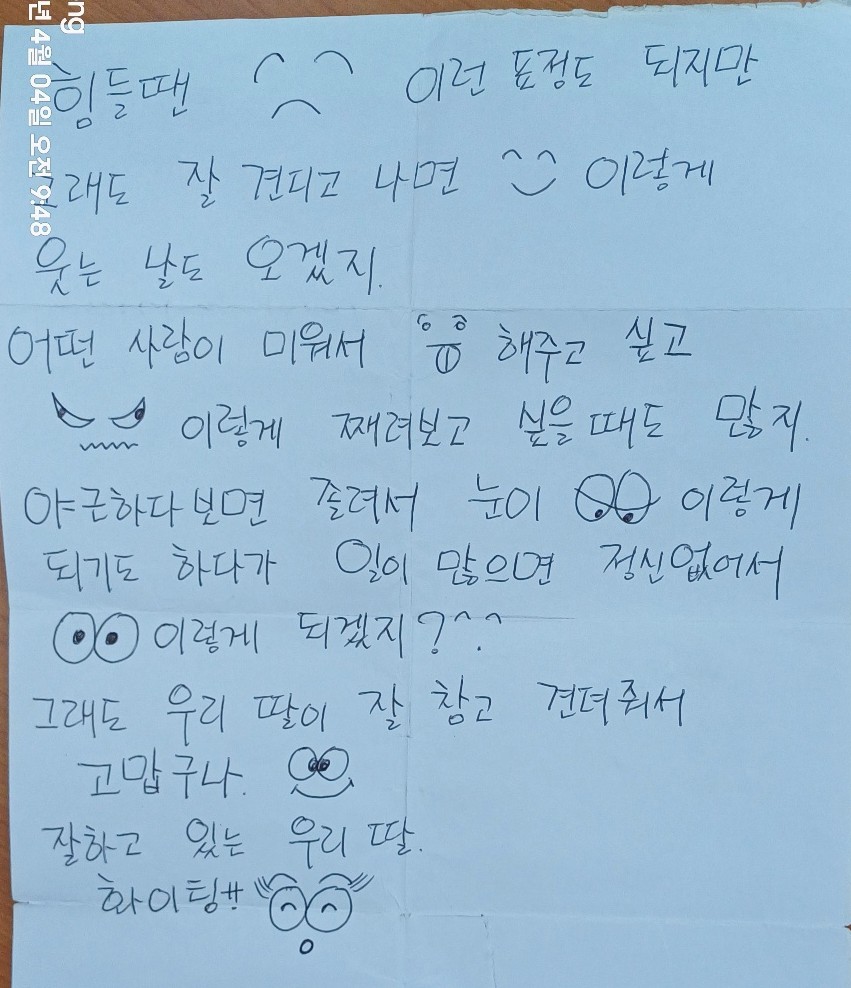 ng
년 4월 04일 오전 9:48
힘들땐 이런 표정도 되지만
그래도 잘 견디고 나면 이렇게
웃는 날도 오겠지.
어떤 사람이 미워서 해주고 싶고
이렇게 째려보고 싶을때도 많지.
야근하다보면 졸려서 눈이 이렇게
되기도 하다가 일이 많으면 정신없어서
이렇게 되겠지?^^
그래도 우리 딸이 잘 참고 견뎌줘서
고맙구나.
잘하고 있는 우리 딸.
화이팅!!